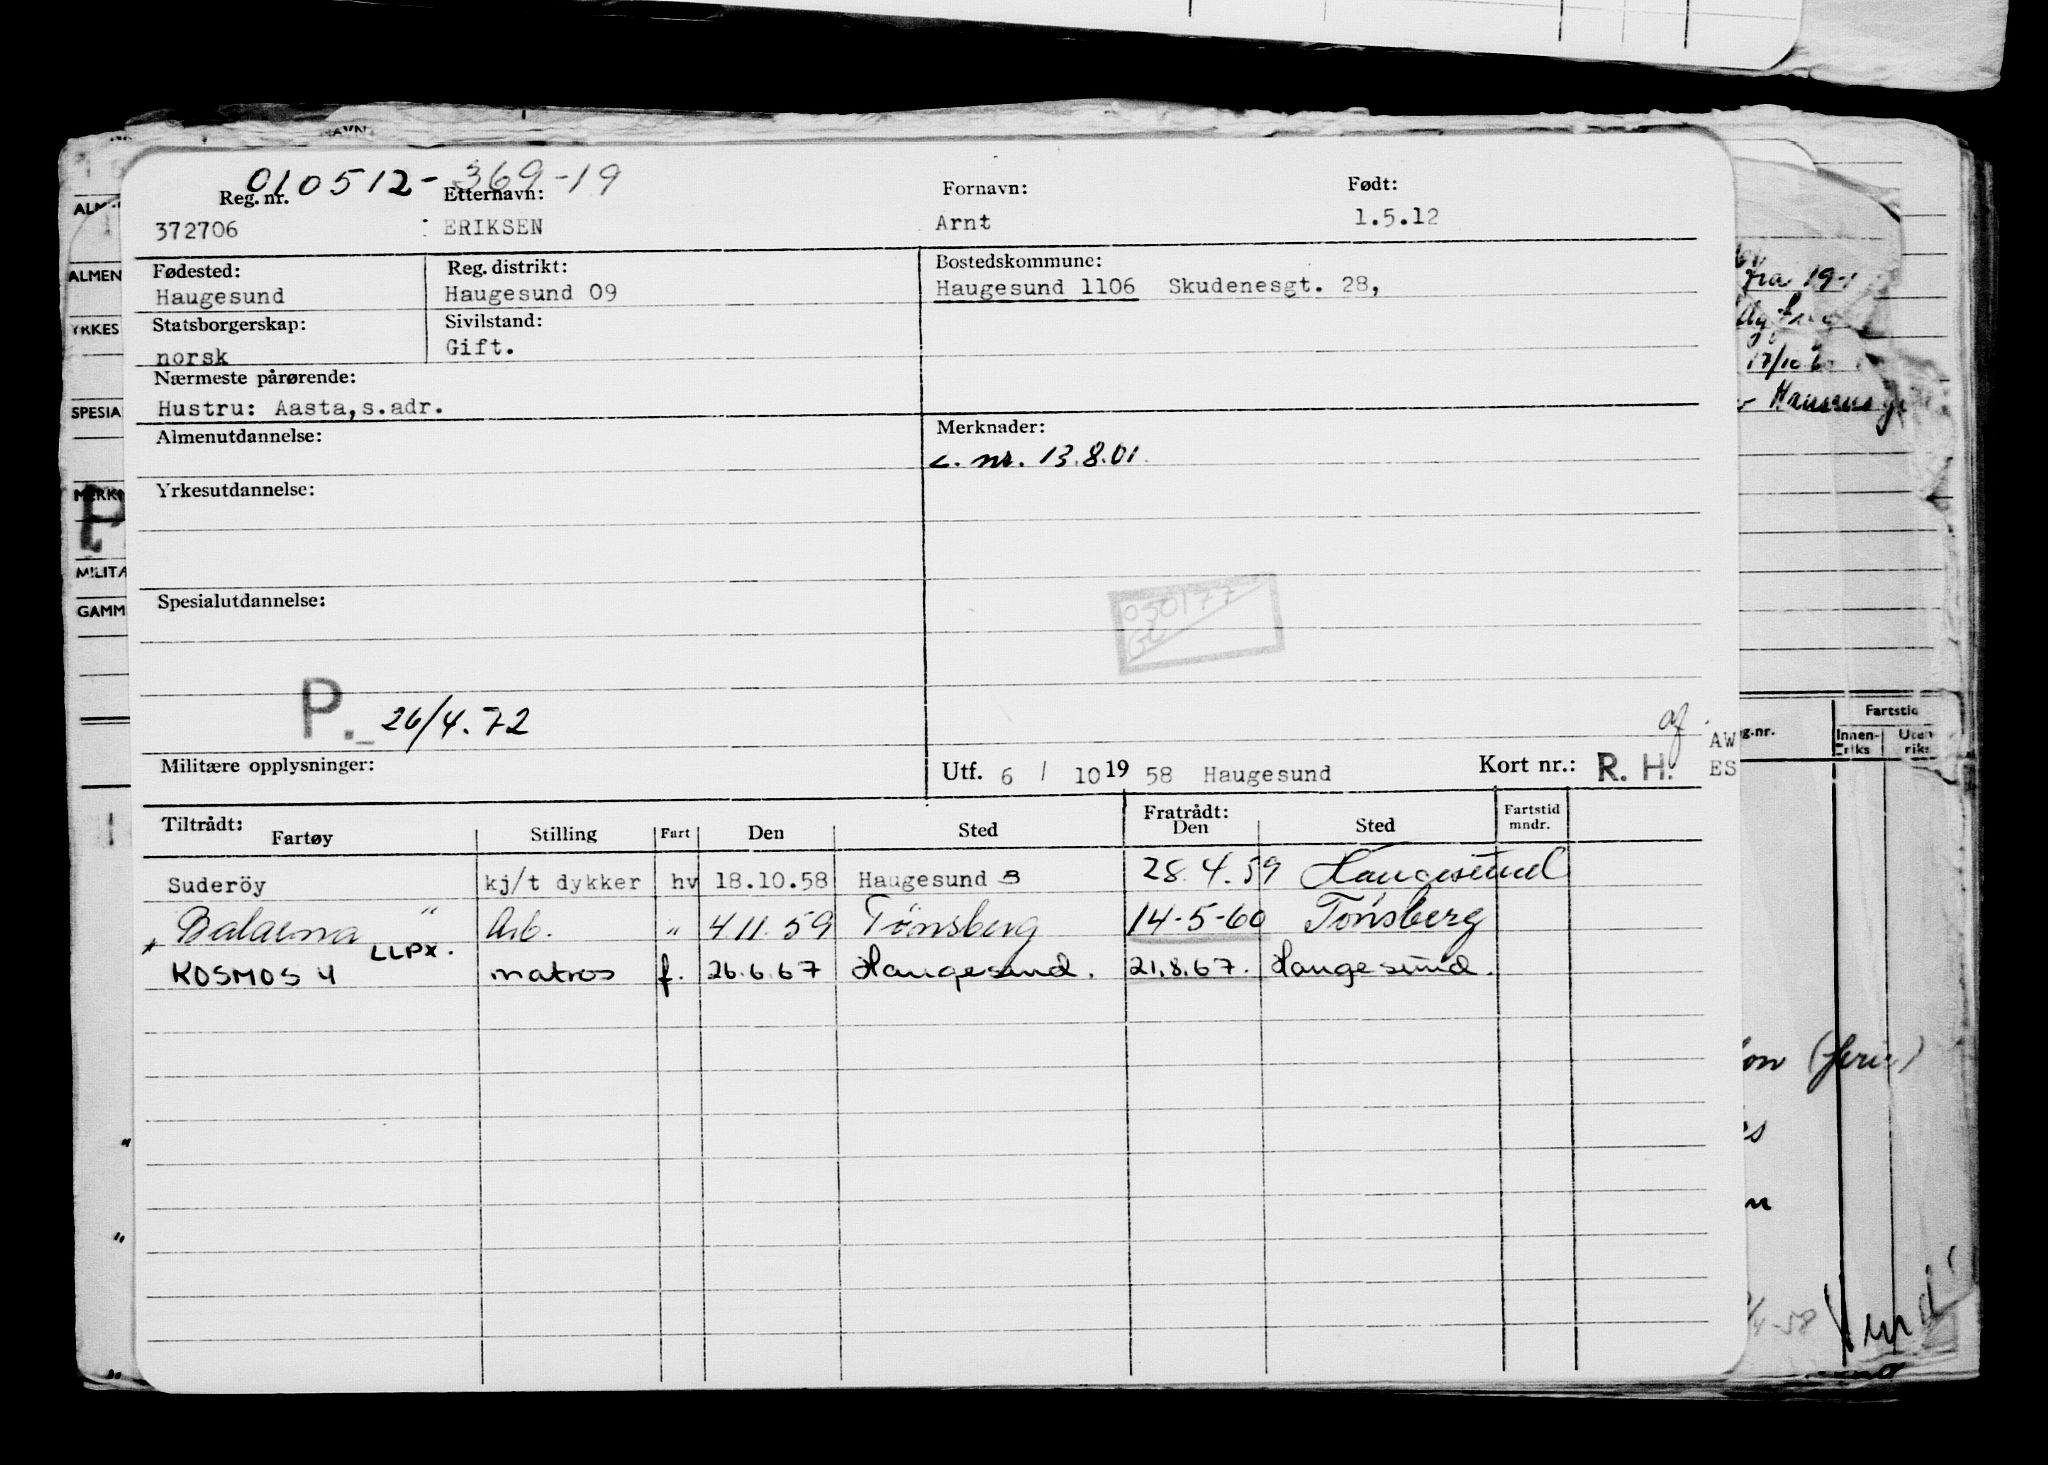 010512-369-19
Reg. nr. Etternavn: Fornavn: Født:
372706 ERIKSEN Arnt 1.5.12
Fødested: Reg. distrikt: Bostedskommune:
Haugesund Haugesund 09 Haugesund 1106 Skudenesgt. 28,
Statsborgerskap: Sivilstand:
norsk Gift.
Nærmeste pårørende:
Hustru: Aasta,s.adr.
Almenutdannelse: Merknader:
c. nr. 13.8.01.
Yrkesutdannelse:
Spesialutdannelse:
050177
P. 26/4.72
Militære opplysninger: Utf. 6 / 10 19 58 Haugesund Kort nr.: R. H.
AW
ES
Tiltrådt: Fratrådt:
Fartøy Stilling Fart Den Sted Den Sted Fartstid mndr.
Suderöy kj/t dykker hv 18.10.58 Haugesund B 28.4.59 Haugesund
Balaena " Arb. " 4 11. 59 Tönsberg 14-5-60 Tønsberg
LLPX.
KOSMOS 4 matros f. 26.6.67 Haugesund. 21.8.67. Haugesund.
ALMEN
YRKES
SPESIA
MERK
MILITÆ
GAMM
fra 19-
17/10
g.nr. Fartstid
Innen-riks Uten riks